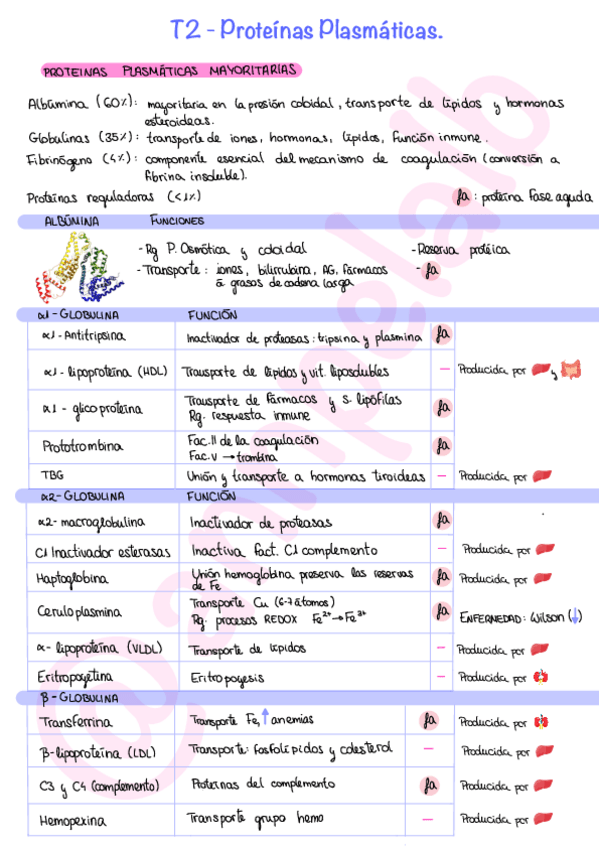 T2 - Proteínas Plasmáticas.
PROTEINAS PLASMÁTICAS MAYORITARIAS
Albúmina (60%): mayoritaria en la presión coloidal, transporte de lípidos y hormonas
esteroideas.
Globulinas (35%): transporte de iones, hormonas, lípidos, función inmune.
Fibrinógeno (4%): componente esencial del mecanismo de coagulación (conversión a
fibrina insoluble).
Proteínas reguladoras (<1%)
fa: proteína fase aguda
ALBÚMINA FUNCIONES
- Rg P. Osmótica y coloidal
- Reserva proteica
- Transporte: iones, bilirrubina, AG, fármacos
- fa
á grasos de cadena larga
α1 - GLOBULINA FUNCIÓN
α1 - Antitripsina Inactivador de proteasas: tripsina y plasmina fa
α1 - lipoproteína (HDL) Transporte de lípidos y vit. liposolubles - Producida por y
α1 - glicoproteína Transporte de fármacos y s. lipófilas
Rg. respuesta inmune fa
Prototrombina Fac. II de la coagulación
Fac. V → trombina fa
TBG Unión y transporte a hormonas tiroideas - Producida por
α2 - GLOBULINA FUNCIÓN
α2 - macroglobulina Inactivador de proteasas fa
C1 Inactivador esterasas Inactiva fact. C1 complemento - Producida por
Haptoglobina Unión hemoglobina preserva las reservas
de Fe fa Producida por
Ceruloplasmina Transporte Cu (6-7 átomos)
Rg. procesos REDOX Fe²⁺→Fe³⁺ fa ENFERMEDAD: Wilson (↓)
α - lipoproteína (VLDL) Transporte de lípidos - Producida por
Eritropoyetina Eritropoyesis - Producida por
β - GLOBULINA
Transferrina Transporte Fe, ↑ anemias fa Producida por
β-lipoproteína (LDL) Transporte: fosfolípidos y colesterol - Producida por
C3 y C4 (complemento) Proteínas del complemento fa Producida por
Hemopexina Transporte grupo hemo - Producida por